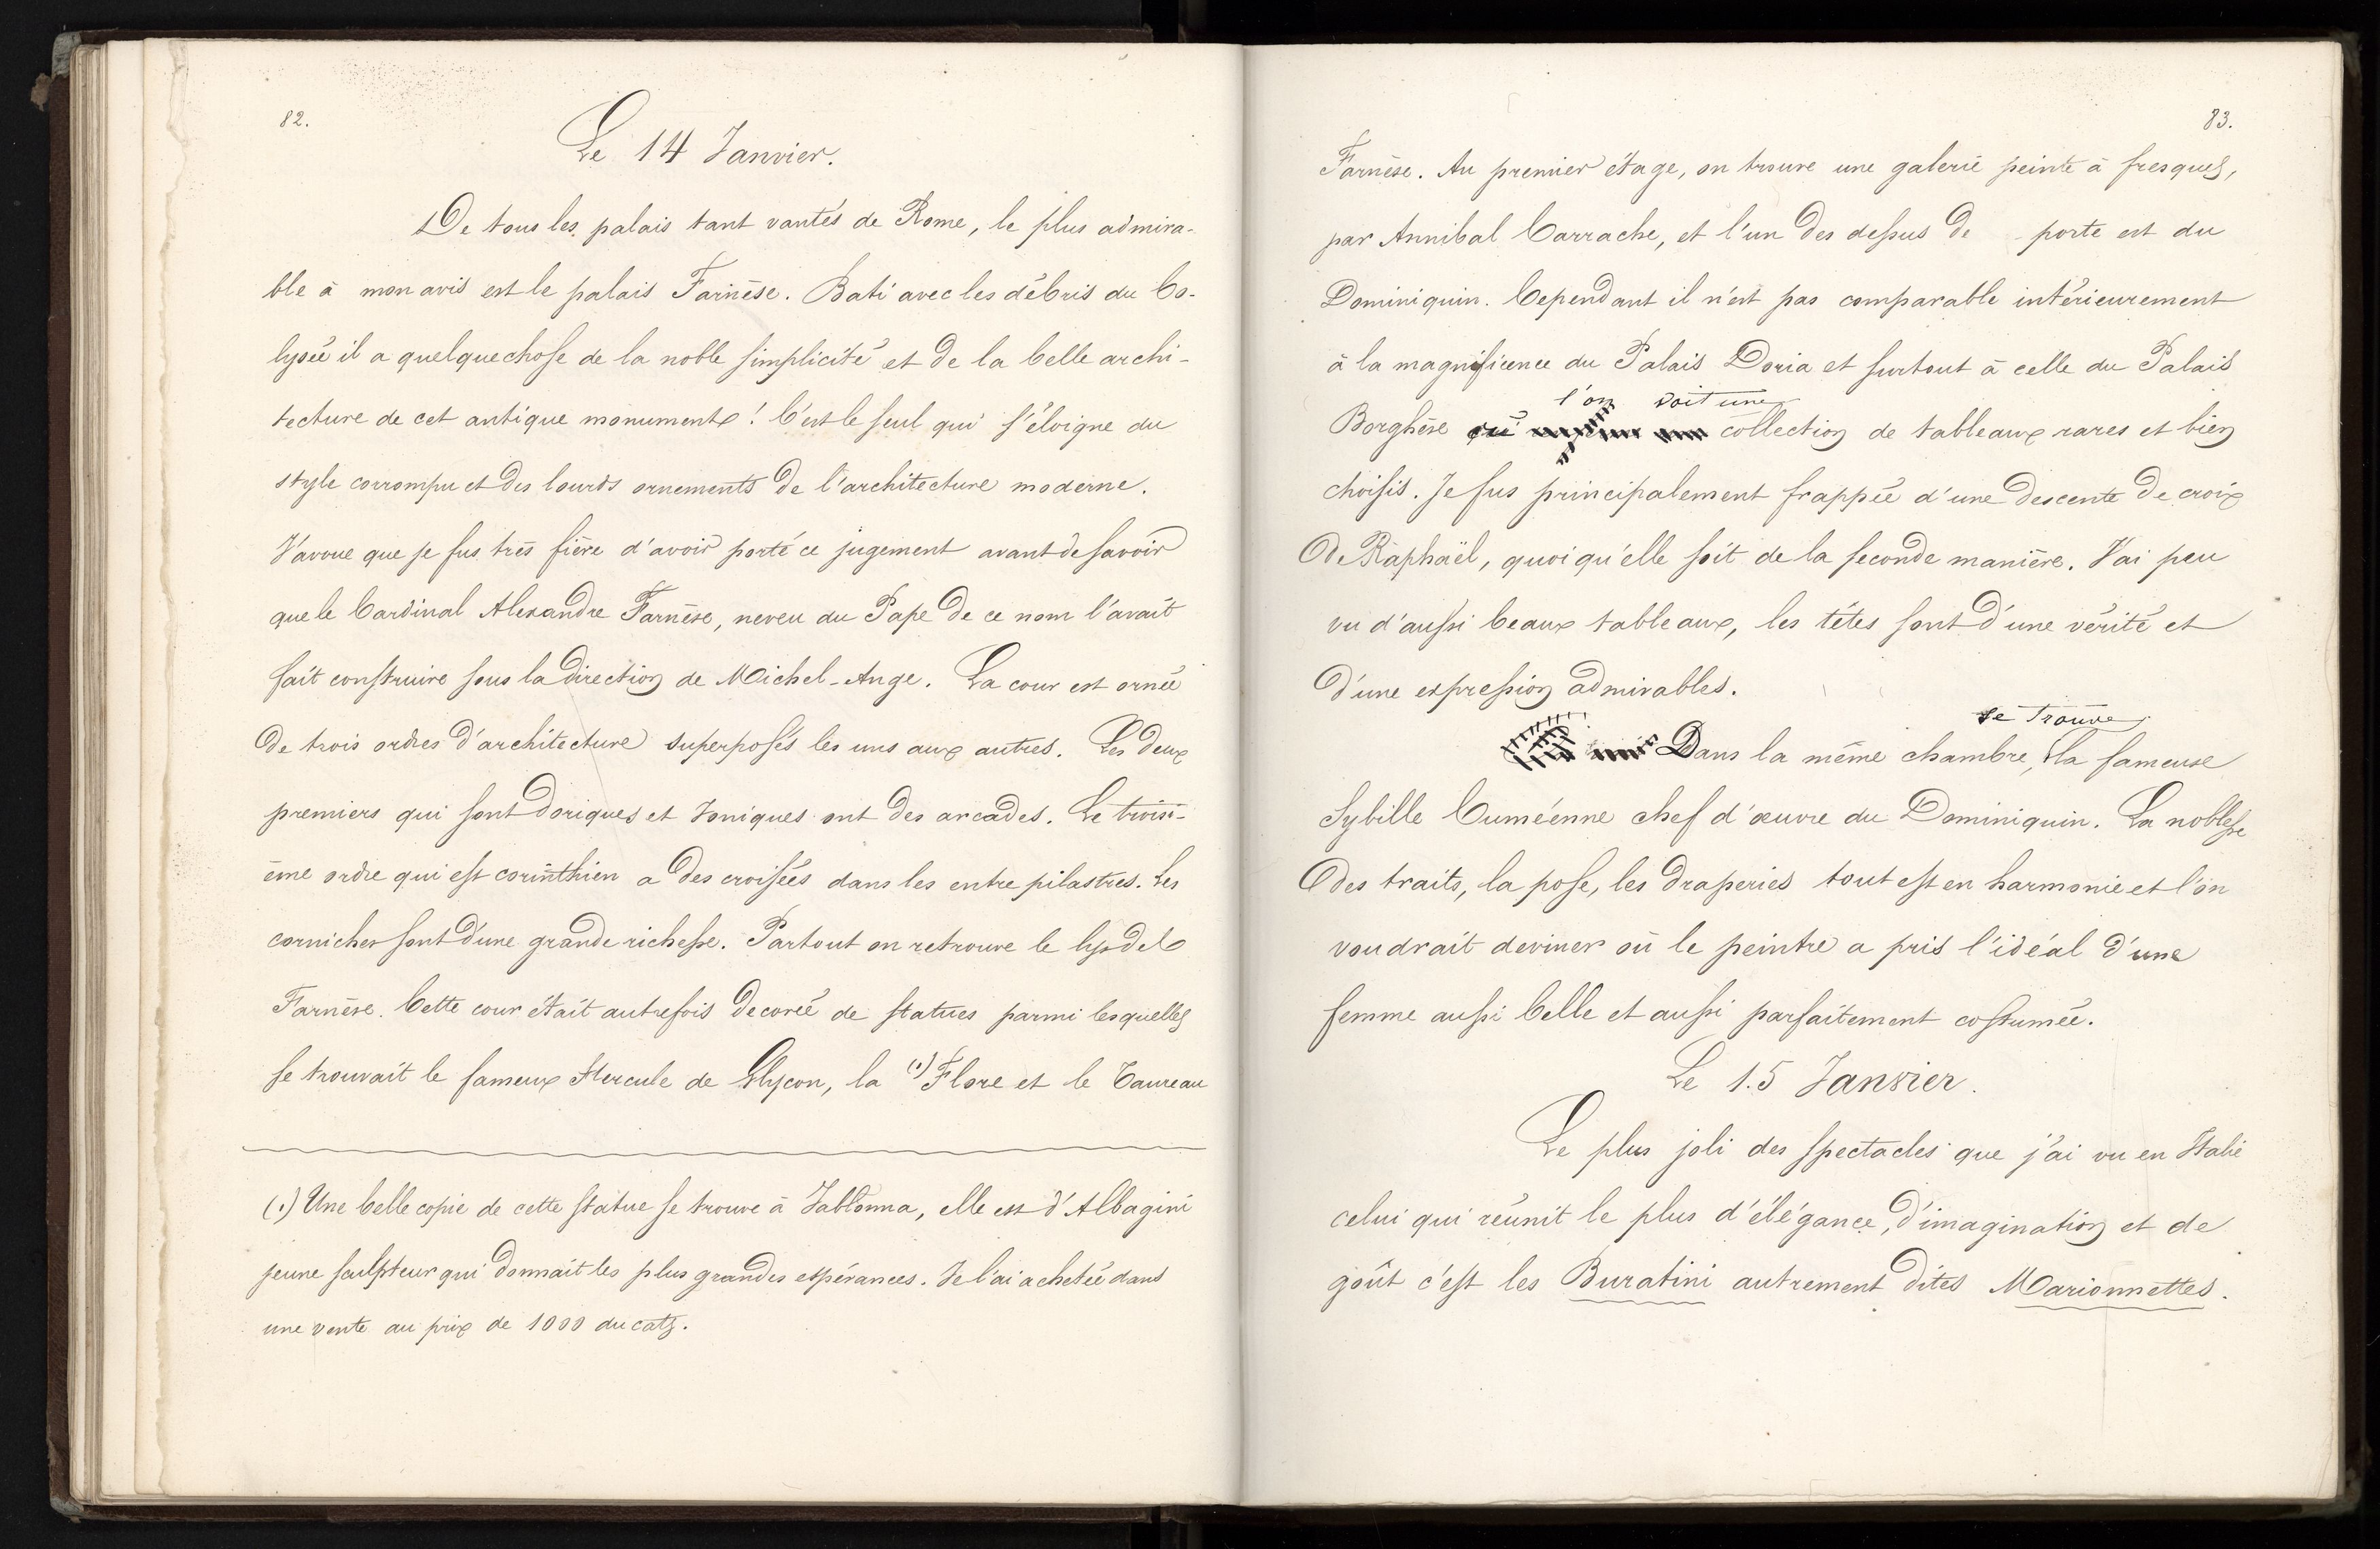 82.
Le 14 Janvier.
De tous les palais tant vantés de Rome, le plus admira-
ble à mon avis est le palais Farnèse. Bati avec les débris du Co-
lysée il a quelque chose de la noble simplicité et de la belle archi-
tecture de cet antique monument ! C'est le seul qui s'éloigne du
style corrompu et des lourds ornements de l'architecture moderne.
J'avoue que je fus très fière d'avoir porté ce jugement avant de savoir
que le Cardinal Alexandre Farnèse, neveu du Pape de ce nom l'avait
fait construire sous la direction de Michel-Ange. La cour est ornée
de trois ordres d'architecture superposés les uns aux autres. Les deux
premiers qui sont doriques et Ioniques ont des arcades. Le troisi-
ème ordre qui est corinthien a des croisées dans les entre pilastres. Les
corniches sont d'une grande richesse. Partout on retrouve le lys del
Farnèse. Cette cour était autrefois decorée de statues parmi lesquelles
se trouvait le fameux Hercule de Glycon, la (1) Flore et le Taureau
(1) Une belle copie de cette statue se trouve à Jablonna, elle est d'Albagini
jeune sculpteur qui donnait les plus grandes espérances. Je l'ai achetée dans
une vente au prix de 1000 ducats.
83.
Farnèse. Au premier étage, on trouve une galerie peinte à fresques,
par Annibal Carrache, et l'un des dessus de porte est du
Dominiquin. Cependant il n'est pas comparable intérieurement
à la magnificence du Palais Doria et surtout à celle du Palais
l'on voit une
Borghèse où collection de tableaux rares et bien
choisis. Je fus principalement frappée d'une descente de croix
de Raphaël, quoiqu'elle soit de la seconde manière. J'ai peu
vu d'aussi beaux tableaux, les têtes sont d'une vérité et
d'une expression admirables.
se trouve
Dans la même chambre, la fameuse
Sybille Cuméenne chef d'œuvre du Dominiquin. La noblesse
des traits, la pose, les draperies tout est en harmonie et l'on
voudrait deviner où le peintre a pris l'idéal d'une
femme aussi belle et aussi parfaitement costumée.
Le 15 Janvier.
Le plus joli des spectacles que j'ai vu en Italie
celui qui réunit le plus d'élégance, d'imagination et de
goût c'est les Buratini autrement dites Marionnettes.